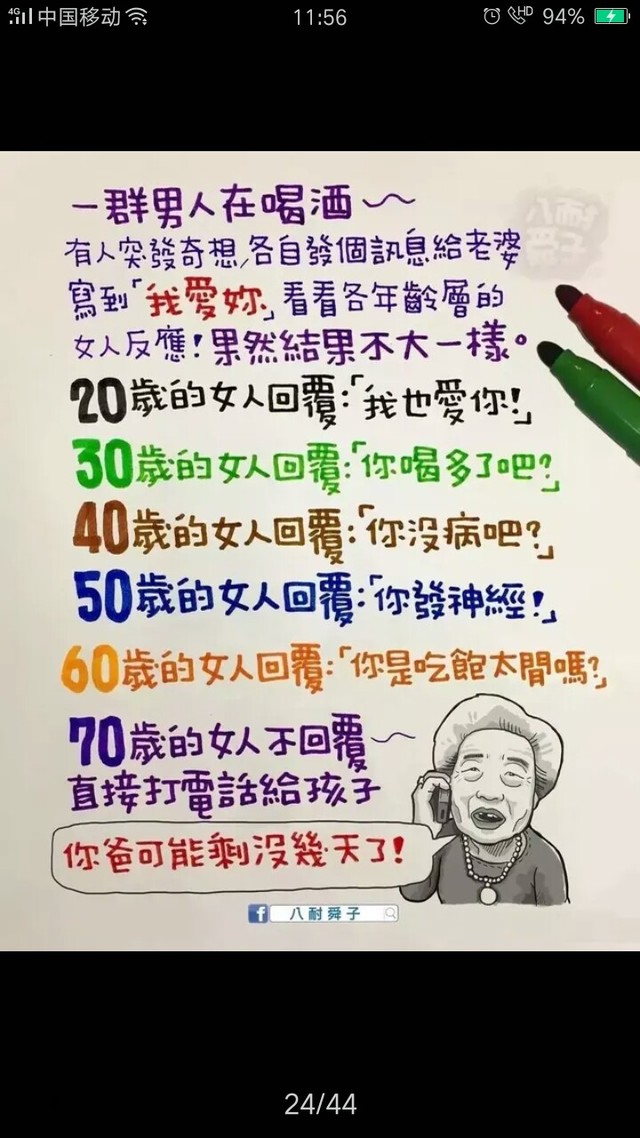 4G 中国移动 11:56 HD 94%
一群男人在喝酒～
八耐舜子
有人突發奇想,各自發個訊息給老婆
寫到「我愛妳」看看各年齡層的
女人反應！果然結果不大一樣。
20歲的女人回覆:「我也愛你!」
30歲的女人回覆:「你喝多了吧?」
40歲的女人回覆:「你没病吧?」
50歲的女人回覆:「你發神經!」
60歲的女人回覆:「你是吃飽太閒嗎?」
70歲的女人不回覆～
直接打電話給孩子
你爸可能剩没幾天了!
f 八耐舜子
24/44